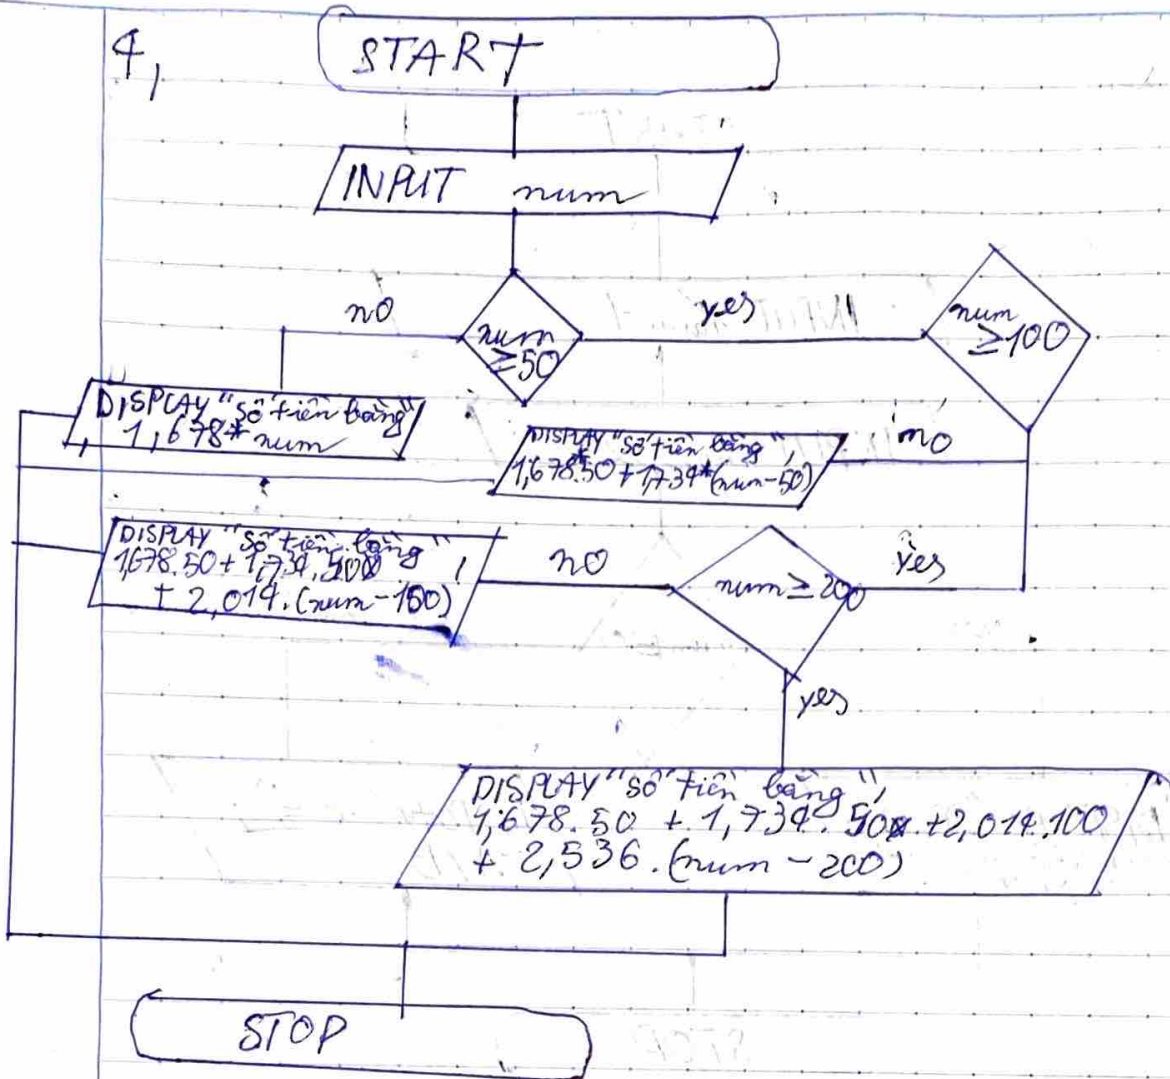 4,
START
INPUT num
num
≥50
no
yes
num
≥100
DISPLAY "số tiền bằng"
1,678* num
DISPLAY "số tiền bằng",
1,678*50+1,734*(num-50)
no
DISPLAY "số tiền bằng",
1,678.50+1,734.50
+ 2,014.(num-100)
no
num ≥ 200
yes
yes
DISPLAY "số tiền bằng",
1,678.50 + 1,734.50 +2,014.100
+ 2,536.(num-200)
STOP